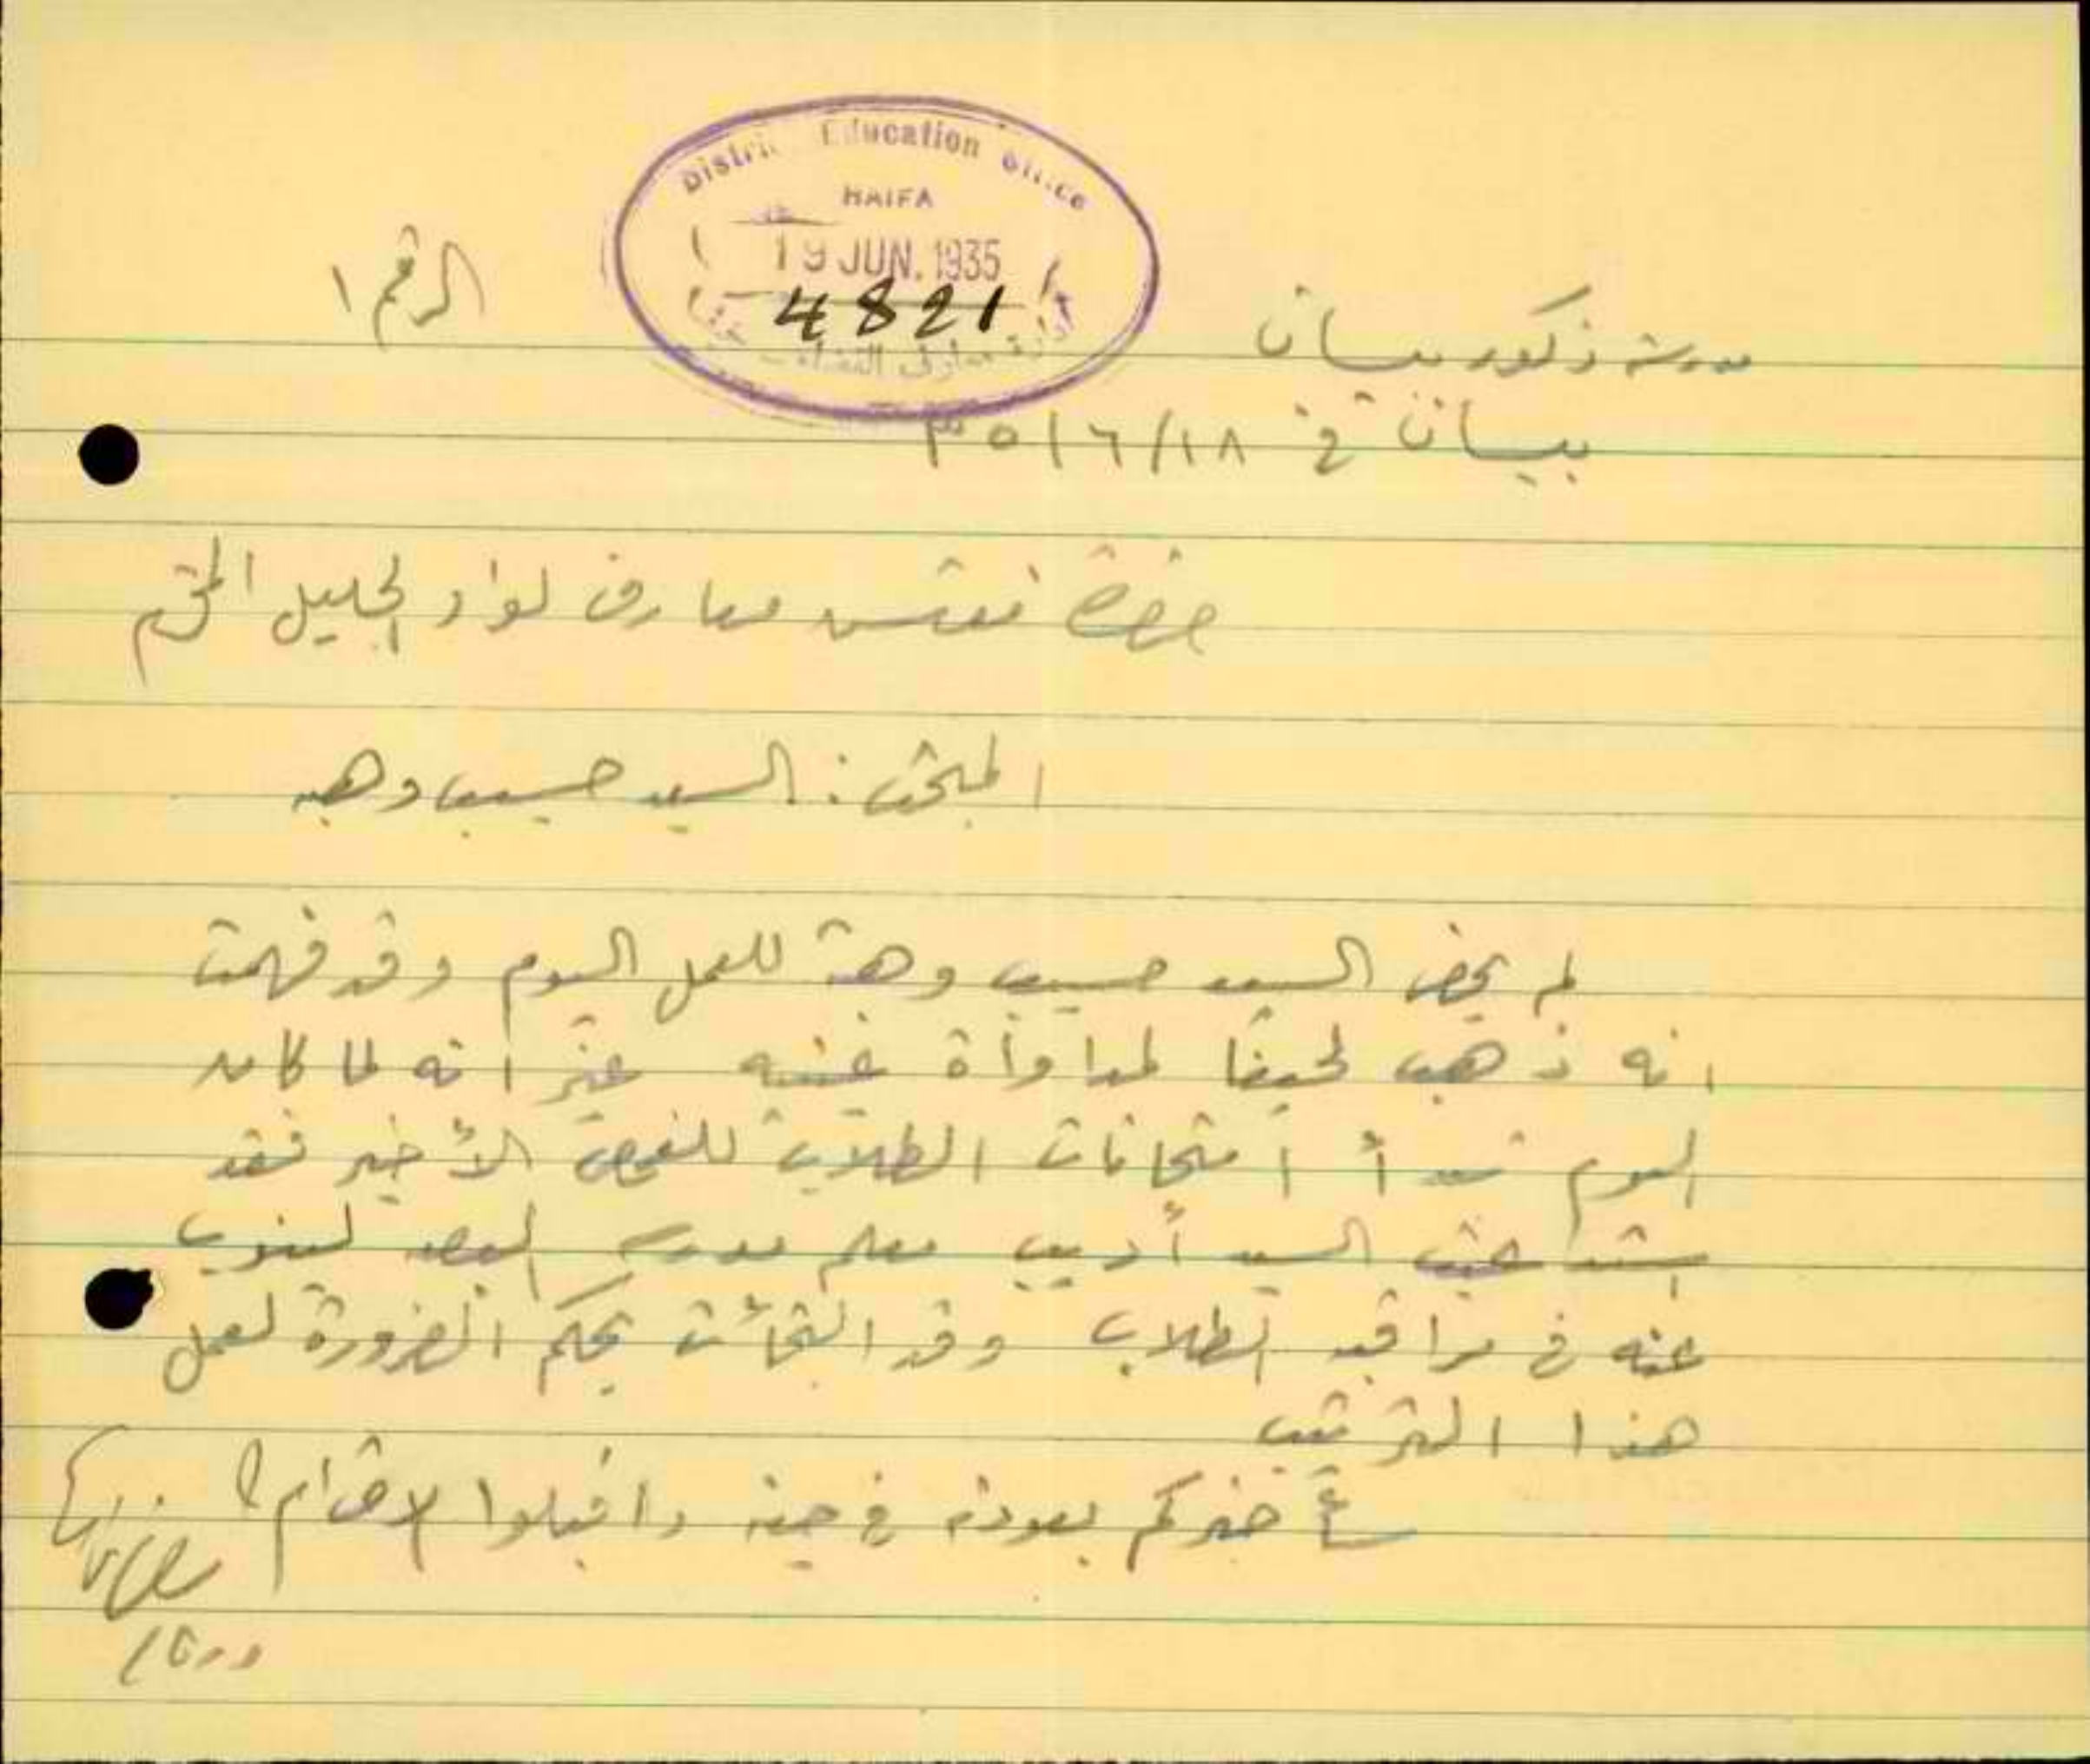 District Education Office
HAIFA
19 JUN. 1935
4821
ادارة معارف القضاء حيفا
الرقم ١
مدرسة ذكور بيسان
بيسان في ١٨/٦/٣٥
حضرة مفتش معارف لواء الجليل المحترم
المبحث: السيد حسيب وهبه
لم يحضر السيد حسيب وهبة للعمل اليوم وقد فهمت
انه ذهب لحيفا لمداواة عينيه غير انه لما كان
اليوم تبدأ امتحانات الطلاب للفحص الأخير فقد
استدعيت السيد أديب معلم مدرسة لينوب
عنه في مراقبة الطلاب وقد التجأت بحكم الضرورة لعمل
هذا الترتيب
سأخبركم بعودته في حينه واقبلوا الاحترام